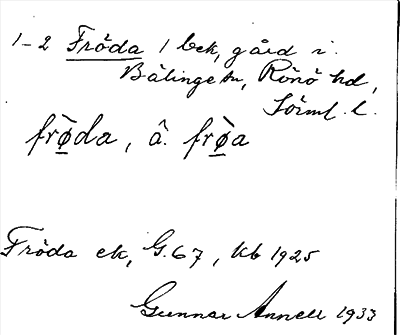 1-2 Fröda 1 bek, gård i
Bälinge sn, Rönö hd,
Sörml. l.
frø̀da, ä. frø̀a
Fröda ek, G.67, kb 1925
Gunnar Annell 1933